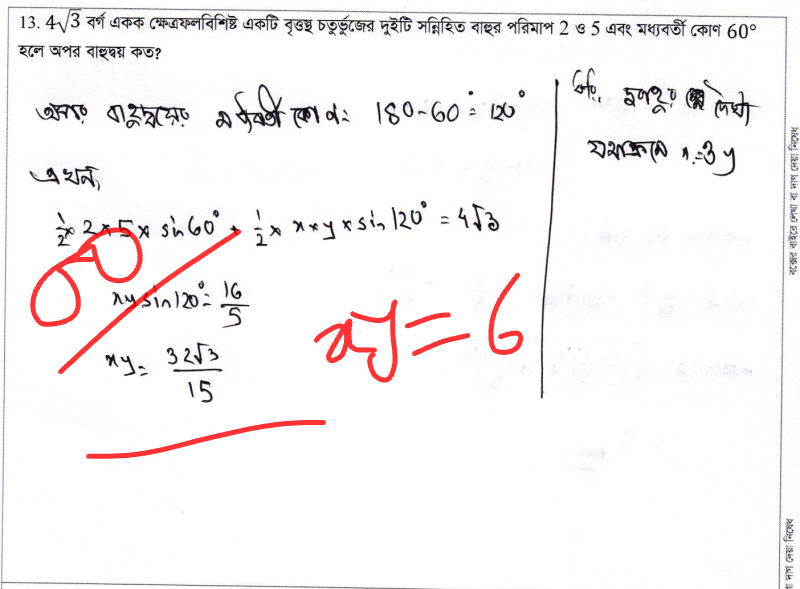 13. 4√3 বর্গ একক ক্ষেত্রফলবিশিষ্ট একটি বৃত্তস্থ চতুর্ভুজের দুইটি সন্নিহিত বাহুর পরিমাপ 2 ও 5 এবং মধ্যবর্তী কোণ 60°
হলে অপর বাহুদ্বয় কত?
অপর বাহুদ্বয়ের মধ্যবর্তী কোণ = 180 - 60° = 120°
এখন,
1/2 × 2 × 5 × sin 60° + 1/2 × x × y × sin 120° = 4√3
xy sin 120° = 16/5
xy = 32√3/15
xy = 6
ধরি, অপর দৈর্ঘ্য
যথাক্রমে x = 3 y
বক্সের বাইরে লেখা বা দাগ দেয়া নিষেধ
া দাগ দেয়া নিষেধ